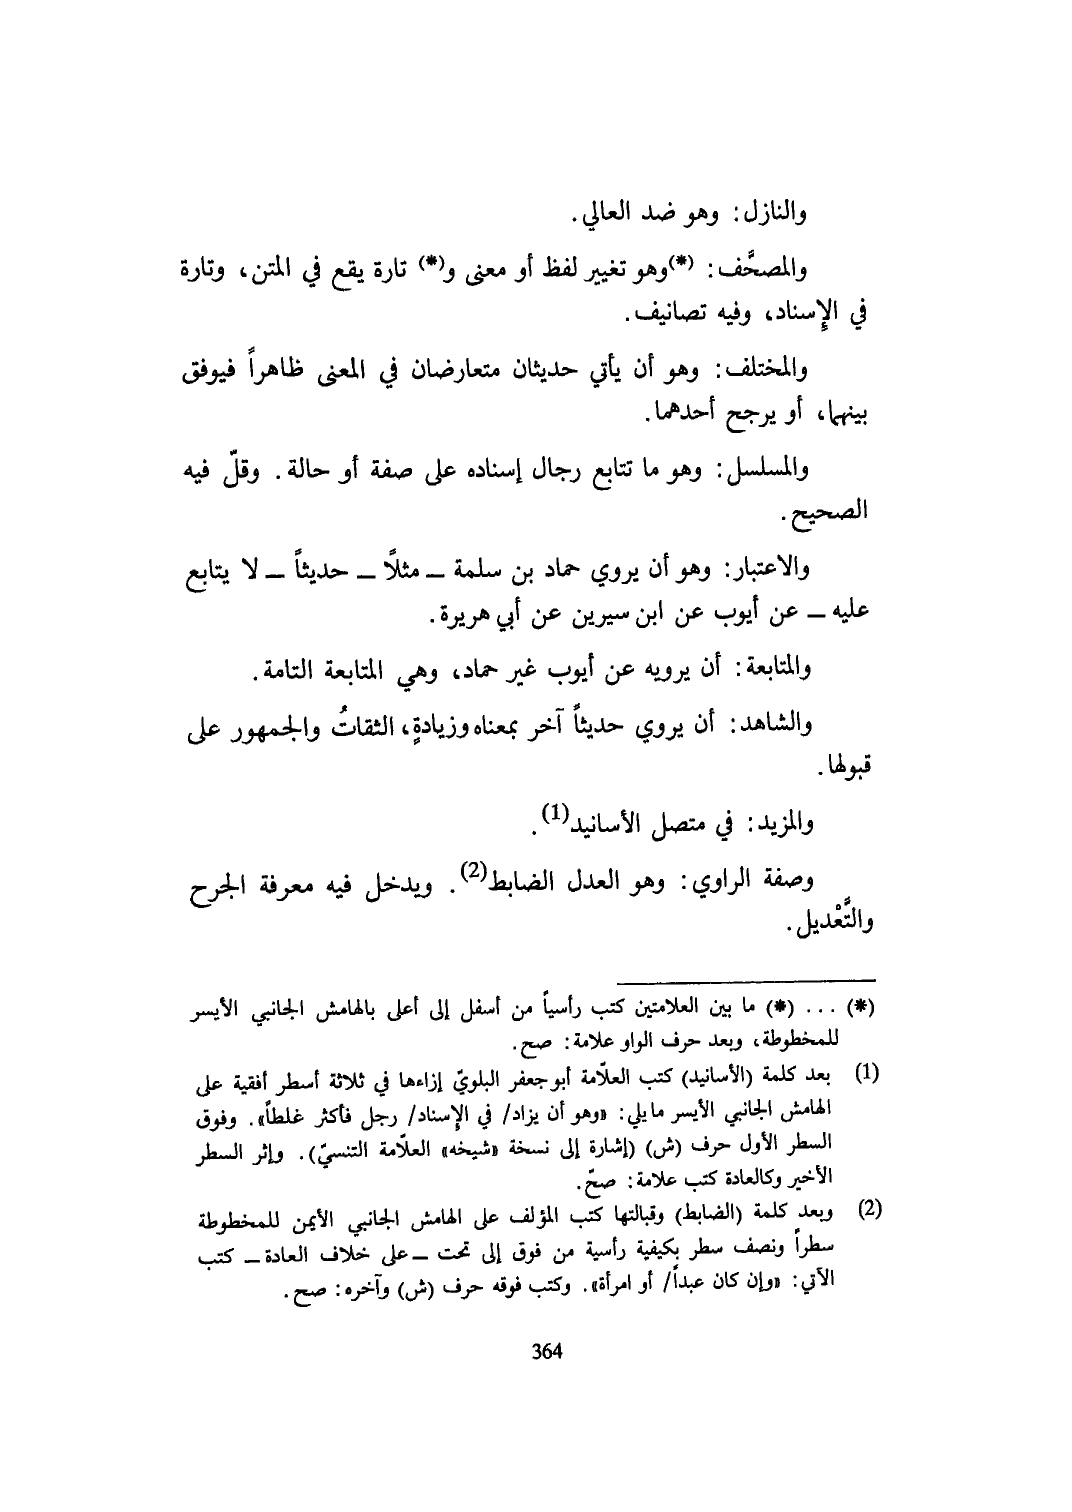 والنازل: وهو ضد العالي.
والمصحَّف: (*)وهو تغيير لفظ أو معنى و(*) تارة يقع في المتن، وتارة
في الإِسناد، وفيه تصانيف.
والمختلف: وهو أن يأتي حديثان متعارضان في المعنى ظاهراً فيوفق
بينهما، أو يرجح أحدهما.
والمسلسل: وهو ما تتابع رجال إسناده على صفة أو حالة. وقلّ فيه
الصحيح.
والاعتبار: وهو أن يروي حماد بن سلمة ــ مثلاً ــ حديثاً ــ لا يتابع
عليه ــ عن أيوب عن ابن سيرين عن أبي هريرة.
والمتابعة: أن يرويه عن أيوب غير حماد، وهي المتابعة التامة.
والشاهد: أن يروي حديثاً آخر بمعناه وزيادةٍ، الثقاتُ والجمهور على
قبولها.
والمزيد: في متصل الأسانيد(1).
وصفة الراوي: وهو العدل الضابط(2). ويدخل فيه معرفة الجرح
والتَّعْديل.
(*) ... (*) ما بين العلامتين كتب رأسياً من أسفل إلى أعلى بالهامش الجانبي الأيسر
للمخطوطة، وبعد حرف الواو علامة: صح.
(1) بعد كلمة (الأسانيد) كتب العلاّمة أبو جعفر البلويّ إزاءها في ثلاثة أسطر أفقية على
الهامش الجانبي الأيسر ما يلي: «وهو أن يزاد/ في الإِسناد/ رجل فأكثر غلطاً». وفوق
السطر الأول حرف (ش) (إشارة إلى نسخة «شيخه» العلاّمة التنسيّ). وإثر السطر
الأخير وكالعادة كتب علامة: صحّ.
(2) وبعد كلمة (الضابط) وقبالتها كتب المؤلف على الهامش الجانبي الأيمن للمخطوطة
سطراً ونصف سطر بكيفية رأسية من فوق إلى تحت ــ على خلاف العادة ــ كتب
الآتي: «وإن كان عبداً/ أو امرأة». وكتب فوقه حرف (ش) وآخره: صح.
364